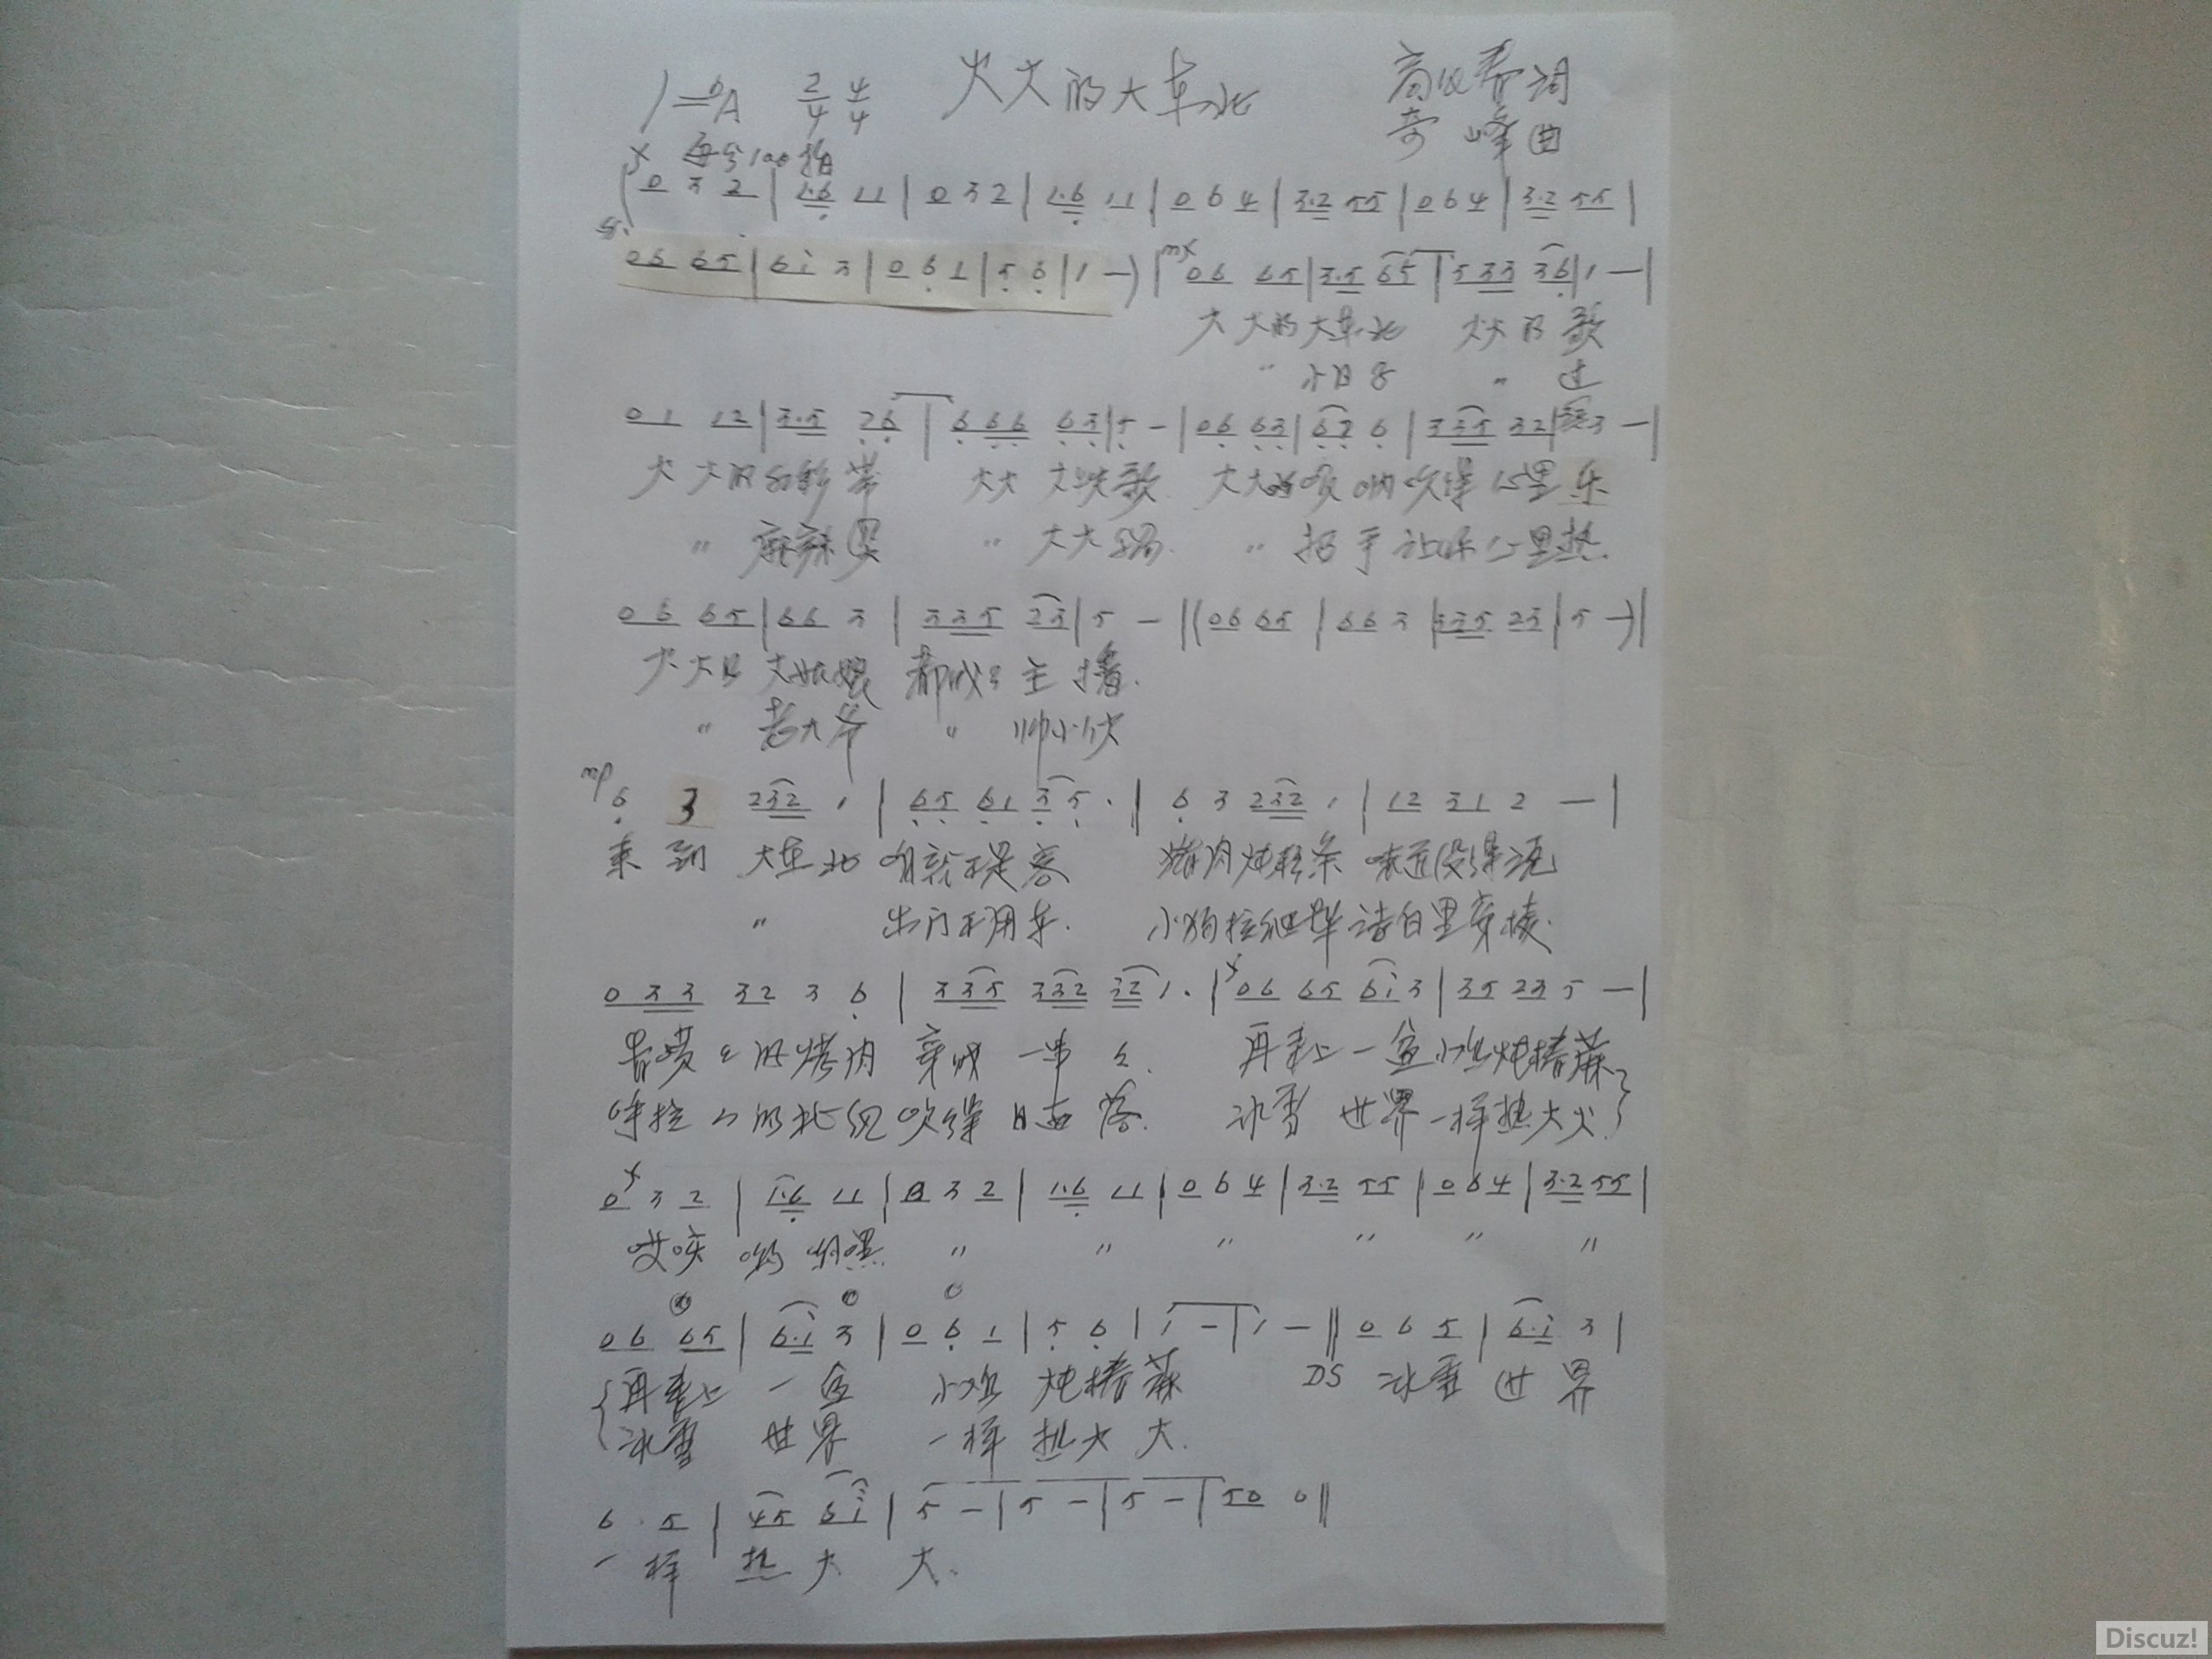 1=♭A 2/4 4/4 火火的大东北 高 词
奇峰曲
f 每分100拍
0 3 2 | 1·6 1 1 | 0 3 2 | 1·6 1 1 | 0 6 4 | 3·2 5 5 | 0 6 4 | 3·2 5 5 |
0 6 6 5 | 6 i 3 | 0 6 1 | 5 6 | 1 — ) | mf 0 6 6 5 | 3·5 6 5 | 5 3 3 3 6 | 1 — |
火火的大东北 火火的歌
〃 小日子 〃 过
0 1 1 2 | 3·5 2 6 | 6 6 6 6 3 | 5 — | 0 6 6 3 | 6 2 6 | 3 3 5 3 2 | 3 — |
火火的 彩带 火火 大秧歌 火火的唢呐吹得心里乐
〃 麻辣烫 〃 火火锅 〃 招手 心里热
0 6 6 5 | 6 6 3 | 3 3 5 2 3 | 5 — || ( 0 6 6 5 | 6 6 3 | 3 3 5 2 3 | 5 — ) |
火火的大姑娘 都成了主播
〃 老大爷 〃 帅小伙
mp 6 3 2 3 2 1 | 6 5 6 1 3 5 · || 6 3 2 3 2 1 | 1 2 3 1 2 — |
来到 大东北 咱就不是客 猪肉炖粉条 味道没得说
〃 出门不用车 小狗拉爬犁 里穿梭
0 3 3 3 2 3 6 | 3 3 5 3 3 2 3 2 1 · | f 0 6 6 5 6 i 3 | 3 5 2 3 5 — |
香喷々的烤肉 穿成一串々 再来上一盆小鸡炖榛蘑
呼拉々的北风吹得日西落 冰雪世界一样热火火
f 0 3 2 | 1·6 1 1 | 0 3 2 | 1·6 1 1 | 0 6 4 | 3·2 5 5 | 0 6 4 | 3·2 5 5 |
哎 哟 〃 〃 〃 〃 〃 〃
0 6 6 5 | 6·i 3 | 0 6 1 | 5 6 | 1 — | 1 — || 0 6 5 | 6·i 3 |
再来上 一盆 小鸡炖榛蘑 DS 冰雪世界
冰雪 世界 一样热火火
6 · 5 | 4 5 6 i | 5 — | 5 — | 5 — | 5 0 0 ||
一样热火火
Discuz!